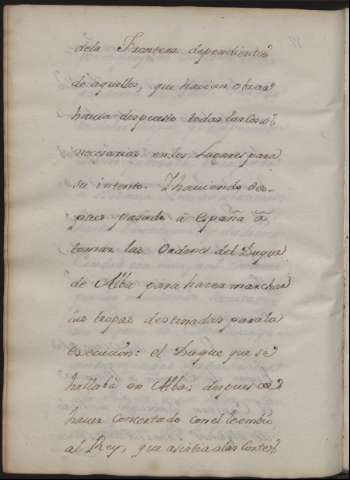 dela Frontera dependientes
de aquellos, que havian obrar
havia despuesto todas las cosas
necesarias en los Lugares para
su intento. Y haviendo des-
pues pasado à España à
tomar las Ordenes del Duque
de Alba para hacer marchar
las tropas destinadas para la
execucion: el Duque que se
hallaba en Alba, despues de
haver concertado con el
al Rey, que asistia a las Cortes